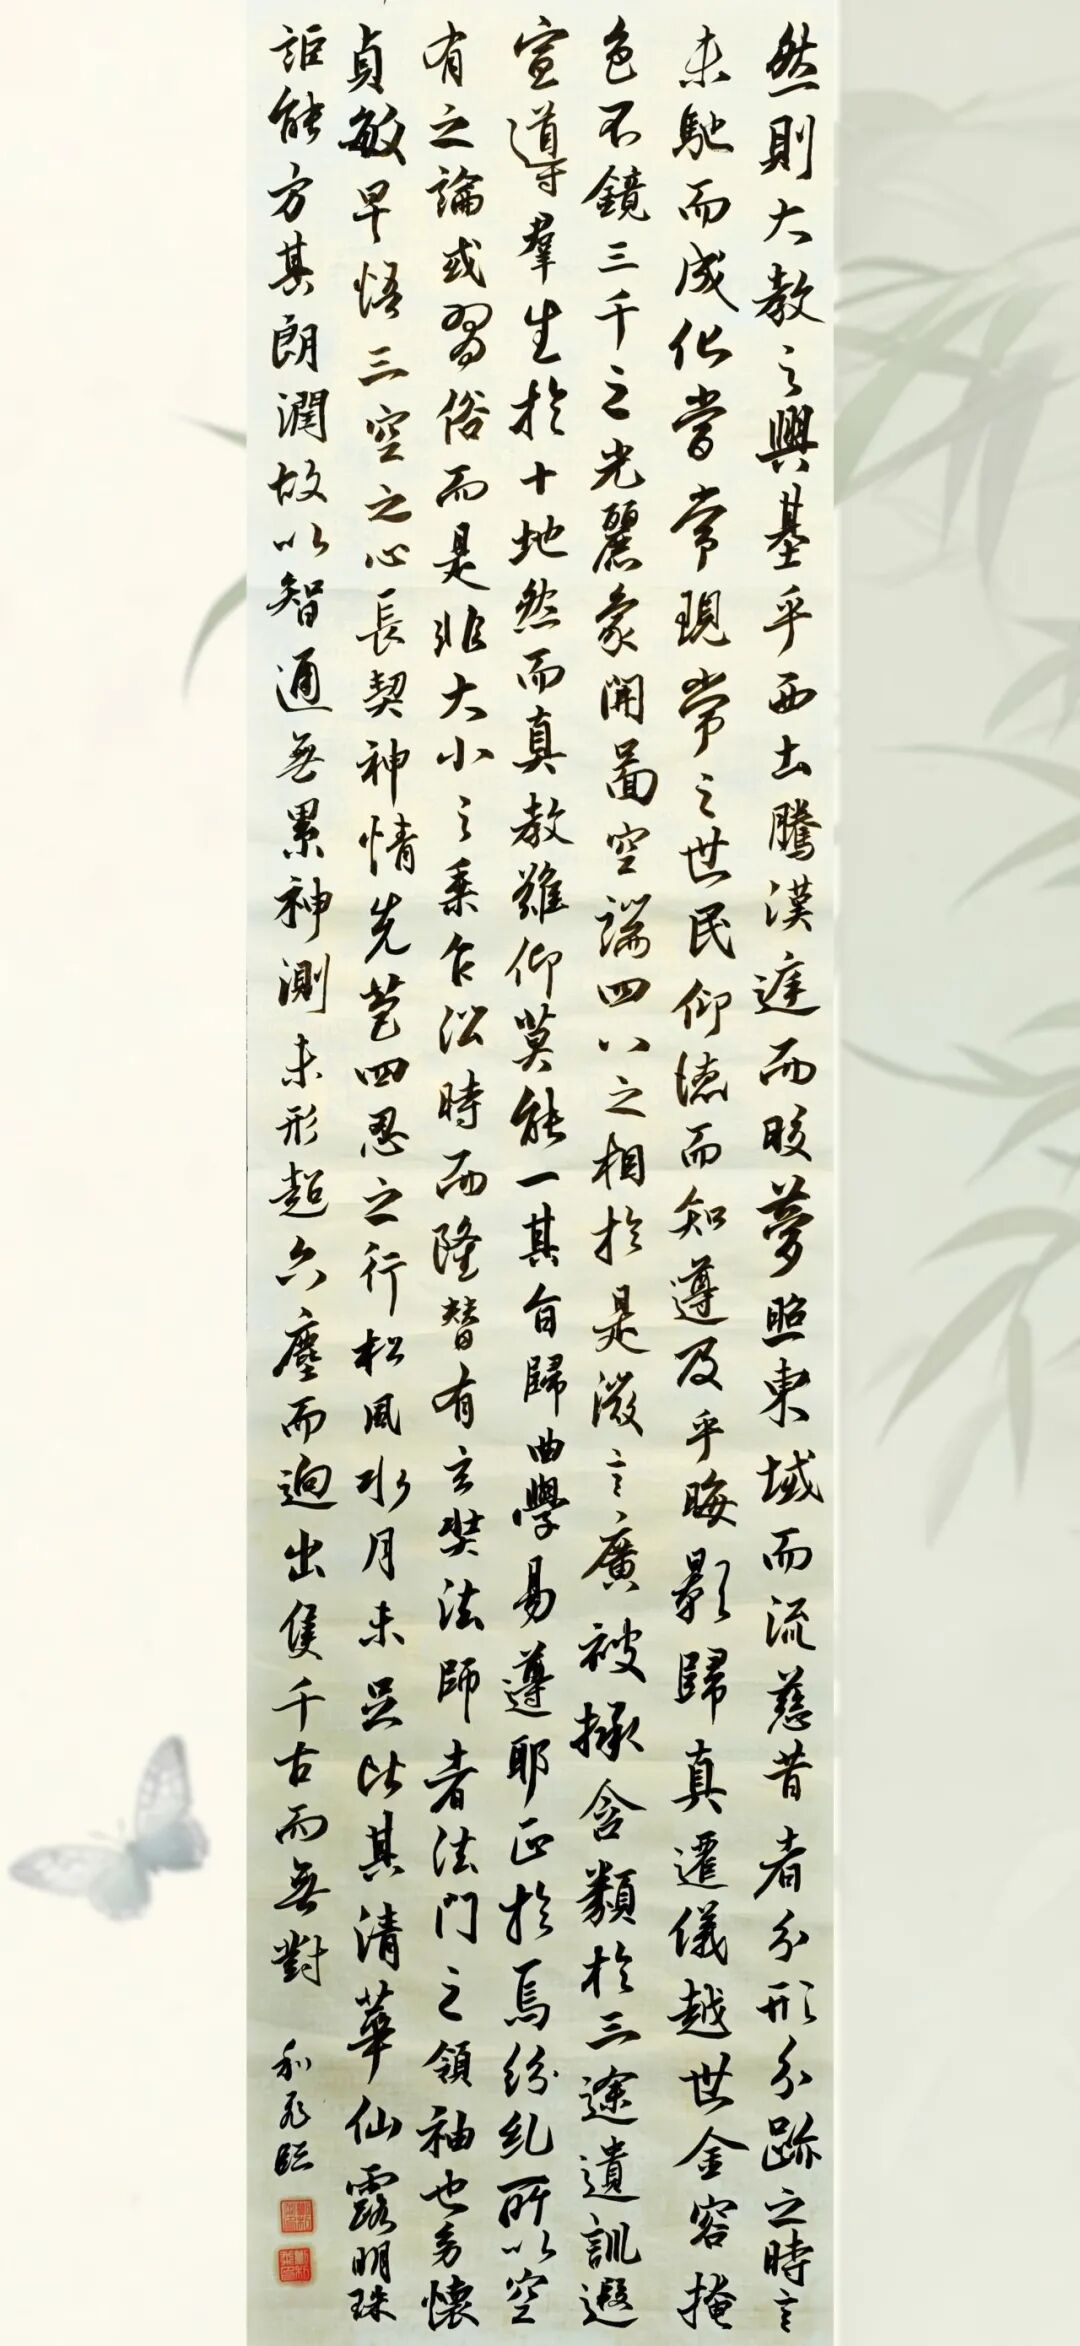 然則大教之興基乎西土騰漢庭而皎夢照東域而流慈昔者分形分跡之時言
未馳而成化當常現常之世民仰德而知遵及乎晦影歸真遷儀越世金容掩
色不鏡三千之光麗象開圖空端四八之相於是微言廣被拯含類於三途遺訓遐
宣導羣生於十地然而真教難仰莫能一其旨歸曲學易遵耶正於焉紛糺所以空
有之論或習俗而是非大小之乘乍沿時而隆替有玄奘法師者法門之領袖也幼懷
貞敏早悟三空之心長契神情先苞四忍之行松風水月未足比其清華仙露明珠
詎能方其朗潤故以智通無累神測未形超六塵而迥出隻千古而無對
臨